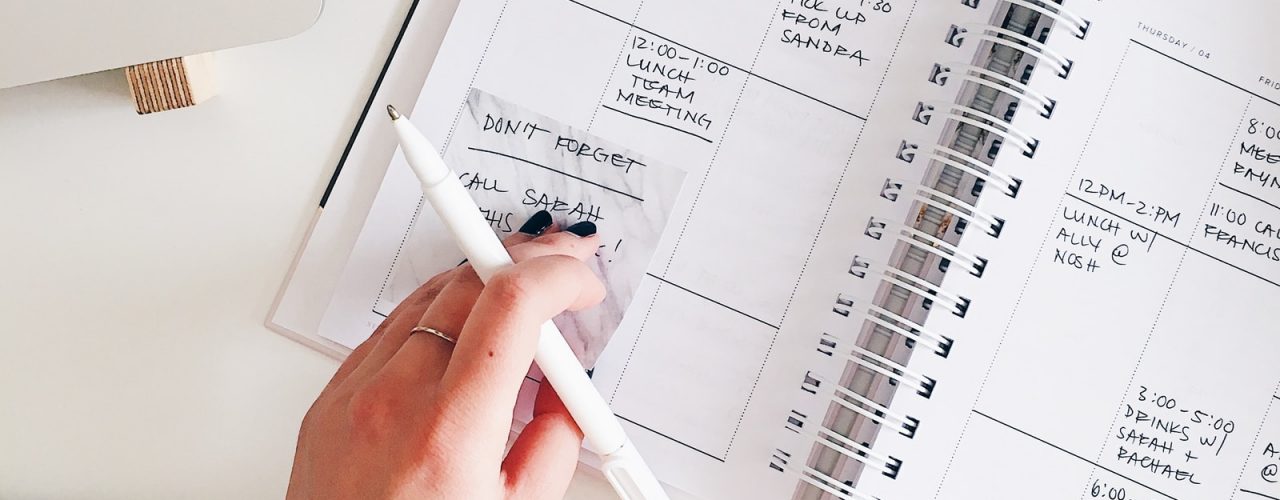 :30
PICK UP
FROM
SANDRA
12:00-1:00
LUNCH
TEAM
MEETING
DON'T FORGET
CALL SARAH
THIS
!
THURSDAY / 04
12PM-2:PM
LUNCH W/
ALLY @
NOSH
3:00-5:00
DRINKS W/
SARAH +
RACHAEL
6:00
FRID
8:00
MEE
11:00 CAL
FRANCIS
@